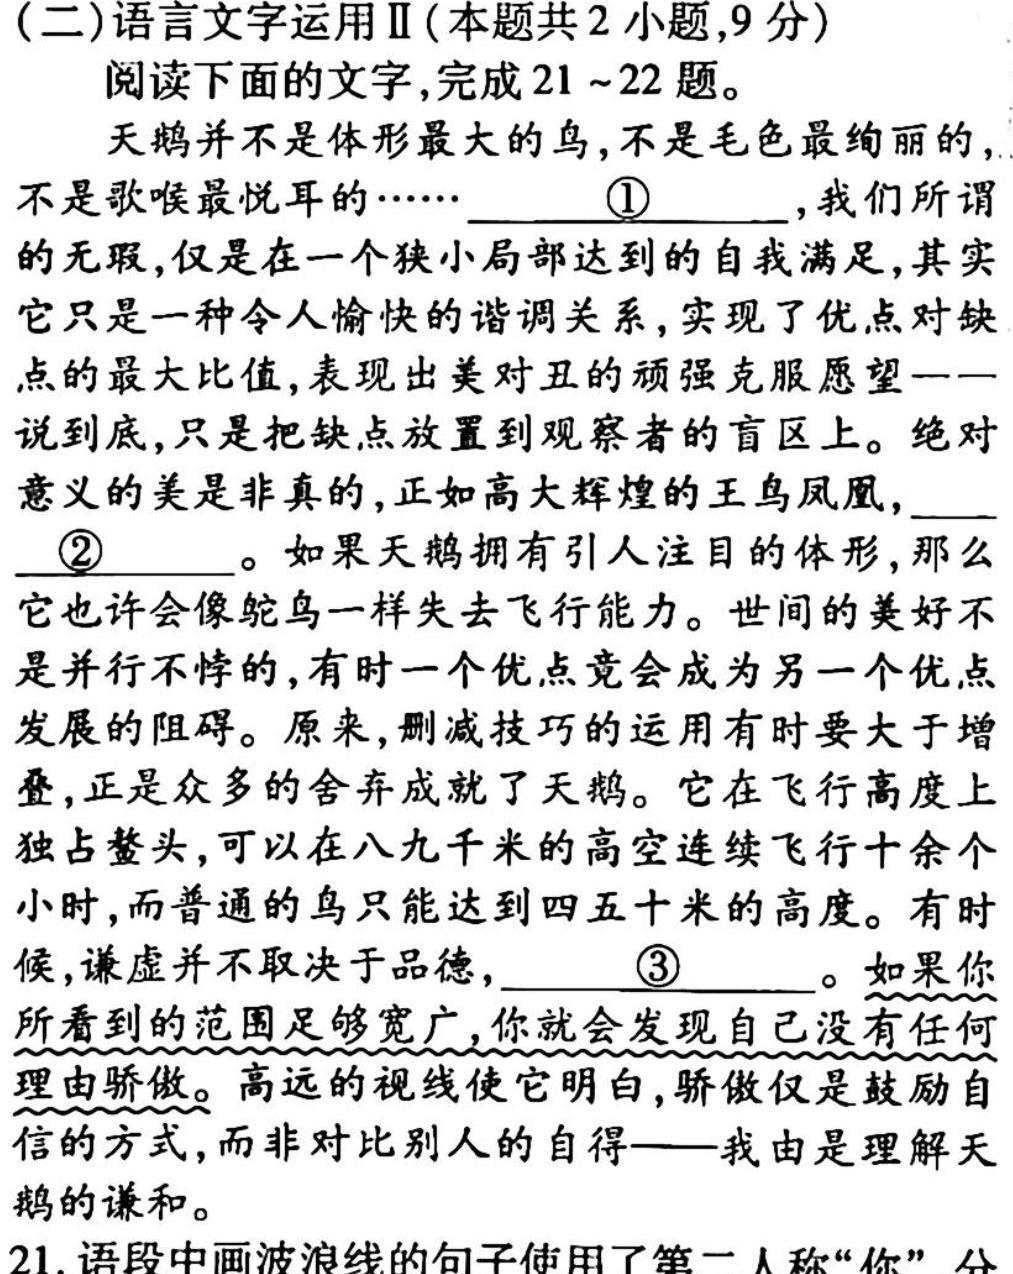 (二)语言文字运用Ⅱ(本题共2小题,9分)
阅读下面的文字,完成21~22题。
天鹅并不是体形最大的鸟,不是毛色最绚丽的,
不是歌喉最悦耳的……①,我们所谓
的无瑕,仅是在一个狭小局部达到的自我满足,其实
它只是一种令人愉快的谐调关系,实现了优点对缺
点的最大比值,表现出美对丑的顽强克服愿望——
说到底,只是把缺点放置到观察者的盲区上。绝对
意义的美是非真的,正如高大辉煌的王鸟凤凰,
②。如果天鹅拥有引人注目的体形,那么
它也许会像鸵鸟一样失去飞行能力。世间的美好不
是并行不悖的,有时一个优点竟会成为另一个优点
发展的阻碍。原来,删减技巧的运用有时要大于增
叠,正是众多的舍弃成就了天鹅。它在飞行高度上
独占鳌头,可以在八九千米的高空连续飞行十余个
小时,而普通的鸟只能达到四五十米的高度。有时
候,谦虚并不取决于品德,③。如果你
所看到的范围足够宽广,你就会发现自己没有任何
理由骄傲。高远的视线使它明白,骄傲仅是鼓励自
信的方式,而非对比别人的自得——我由是理解天
鹅的谦和。
21.语段中画波浪线的句子使用了第二人称“你”,分